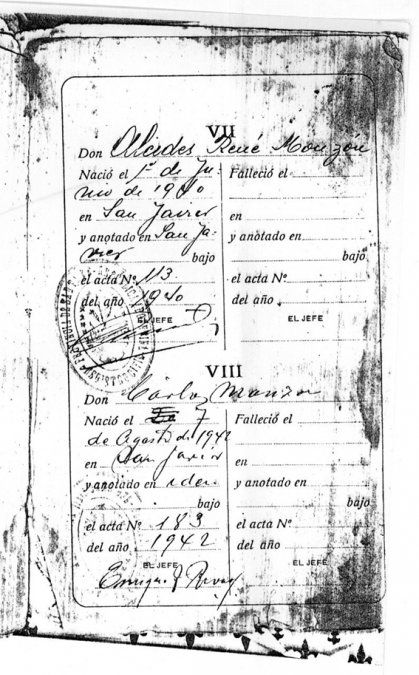 VII
Don Alcides René Monzón
Nació el 1º de Ju-
nio de 1940
en San Javier
y anotado en San Ja-
vier bajo
el acta Nº 113
del año 1940
EL JEFE
Falleció el
en
y anotado en
bajo
el acta Nº
del año
EL JEFE
VIII
Don Carlos Monzon
Nació el 7
de Agosto de 1942
en San Javier
y anotado en idem
bajo
el acta Nº 183
del año 1942
EL JEFE
Falleció el
en
y anotado en
bajo
el acta Nº
del año
EL JEFE